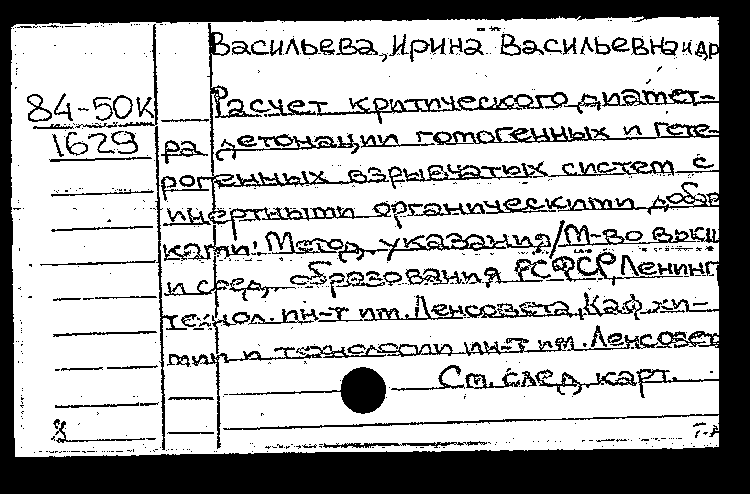 Васильева, Ирина Васильевна и др
84-50К
1629
Расчет критического диамет-
ра детонации гомогенных и гете-
рогенных взрывчатых систем с
инертными органическими добав
ками: Метод. указания/М-во высш
и сред. образования РСФСР, Ленингр
технол. ин-т им. Ленсовета, Каф. хи-
мии и технологии ин-т им. Ленсовет
См. след. карт.
8